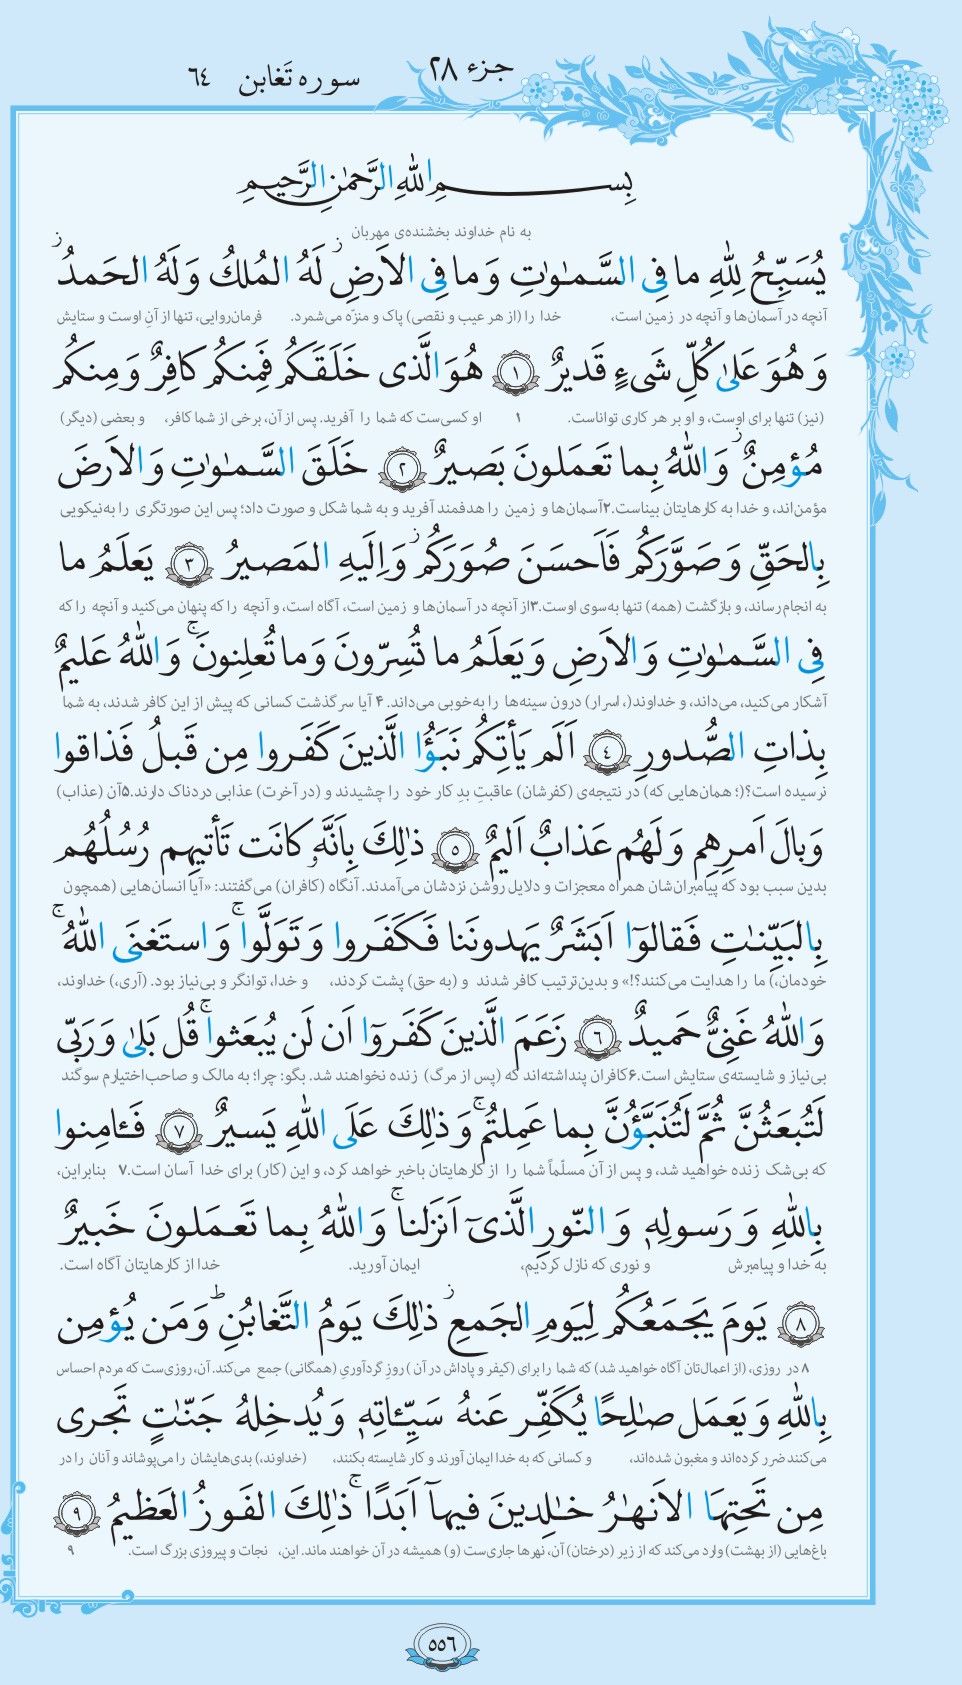 جزء ٢٨
سوره تَغابن ٦٤
بِسمِ اللّٰهِ الرَّحمٰنِ الرَّحيمِ
به نام خداوند بخشنده‌ی مهربان
يُسَبِّحُ لِلّٰهِ ما فِى السَّمـٰوٰتِ وَ ما فِى الاَرضِ ۖ لَهُ المُلكُ وَ لَهُ الحَمدُ ۖ
آنچه در آسمان‌ها و آنچه در زمین است، خدا را (از هر عیب و نقصی) پاک و منزّه می‌شمرد. فرمان‌روایی، تنها از آنِ اوست و ستایش
وَ هُوَ عَلىٰ كُلِّ شَىءٍ قَديرٌ ١ هُوَ الَّذى خَلَقَكُم فَمِنكُم كافِرٌ وَ مِنكُم
(نیز) تنها برای اوست، و او بر هر کاری تواناست. ۱ او کسی‌ست که شما را آفرید. پس از آن، برخی از شما کافر، و بعضی (دیگر)
مُؤمِنٌ ۚ وَ اللّٰهُ بِما تَعمَلونَ بَصيرٌ ٢ خَلَقَ السَّمـٰوٰتِ وَ الاَرضَ
مؤمن‌اند، و خدا به کارهایتان بیناست.۲آسمان‌ها و زمین را هدفمند آفرید و به شما شکل و صورت داد؛ پس این صورتگری را به‌نیکویی
بِالحَقِّ وَ صَوَّرَكُم فَاَحسَنَ صُوَرَكُم ۖ وَ اِلَيهِ المَصيرُ ٣ يَعلَمُ ما
به انجام رساند، و بازگشت (همه) تنها به‌سوی اوست.۳از آنچه در آسمان‌ها و زمین است، آگاه است، و آنچه را که پنهان می‌کنید و آنچه را که
فِى السَّمـٰوٰتِ وَ الاَرضِ وَ يَعلَمُ ما تُسِرّونَ وَ ما تُعلِنونَ ۚ وَ اللّٰهُ عَليمٌ
آشکار می‌کنید، می‌داند، و خداوند(، اسرار) درون سینه‌ها را به‌خوبی می‌داند. ۴ آیا سرگذشت کسانی که پیش از این کافر شدند، به شما
بِذاتِ الصُّدورِ ٤ اَلَم يَأتِكُم نَبَؤُا الَّذينَ كَفَروا مِن قَبلُ فَذاقوا
نرسیده است؟(؛ همان‌هایی که) در نتیجه‌ی (کفرشان) عاقبتِ بدِ کار خود را چشیدند و (در آخرت) عذابی دردناک دارند.۵آن (عذاب)
وَبالَ اَمرِهِم وَ لَهُم عَذابٌ اَليمٌ ٥ ذٰلِكَ بِاَنَّهو كانَت تَأتيهِم رُسُلُهُم
بدین سبب بود که پیامبران‌شان همراه معجزات و دلایل روشن نزدشان می‌آمدند. آنگاه (کافران) می‌گفتند: «آیا انسان‌هایی (همچون
بِالبَيِّنـٰتِ فَقالوٓا اَبَشَرٌ يَهدونَنا فَكَفَروا وَ تَوَلَّوا ۚ وَ استَغنَى اللّٰهُ ۚ
خودمان،) ما را هدایت می‌کنند؟!» و بدین‌ترتیب کافر شدند و (به حق) پشت کردند، و خدا، توانگر و بی‌نیاز بود. (آری،) خداوند،
وَ اللّٰهُ غَنِىٌّ حَميدٌ ٦ زَعَمَ الَّذينَ كَفَروٓا اَن لَن يُبعَثوا ۚ قُل بَلىٰ وَ رَبّى
بی‌نیاز و شایسته‌ی ستایش است.۶کافران پنداشته‌اند که (پس از مرگ) زنده نخواهند شد. بگو: چرا؛ به مالک و صاحب‌اختیارم سوگند
لَتُبعَثُنَّ ثُمَّ لَتُنَبَّؤُنَّ بِما عَمِلتُم ۚ وَ ذٰلِكَ عَلَى اللّٰهِ يَسيرٌ ٧ فَـٔامِنوا
که بی‌شک زنده خواهید شد، و پس از آن مسلّماً شما را از کارهایتان باخبر خواهد کرد، و این (کار) برای خدا آسان است.۷ بنابراین،
بِاللّٰهِ وَ رَسولِهٖ وَ النّورِ الَّذىٓ اَنزَلنا ۚ وَ اللّٰهُ بِما تَعمَلونَ خَبيرٌ
به خدا و پیامبرش و نوری که نازل کردیم، ایمان آورید. خدا از کارهایتان آگاه است.
٨ يَومَ يَجمَعُكُم لِيَومِ الجَمعِ ۖ ذٰلِكَ يَومُ التَّغابُنِ ۗ وَ مَن يُؤمِن
۸ در روزی، (از اعمال‌تان آگاه خواهید شد) که شما را برای (کیفر و پاداش در آن) روزِ گردآوریِ (همگانی) جمع می‌کند. آن، روزی‌ست که مردم احساس
بِاللّٰهِ وَ يَعمَل صـٰلِحًا يُكَفِّر عَنهُ سَيِّـٔاتِهٖ وَ يُدخِلهُ جَنّـٰتٍ تَجرى
می‌کنند ضرر کرده‌اند و مغبون شده‌اند، و کسانی که به خدا ایمان آورند و کار شایسته بکنند، (خداوند،) بدی‌هایشان را می‌پوشاند و آنان را در
مِن تَحتِهَا الاَنهـٰرُ خـٰلِدينَ فيهآ اَبَدًا ۚ ذٰلِكَ الفَوزُ العَظيمُ ٩
باغ‌هایی (از بهشت) وارد می‌کند که از زیر (درختان) آن، نهرها جاری‌ست (و) همیشه در آن خواهند ماند. این، نجات و پیروزی بزرگ است. ۹
٥٥٦